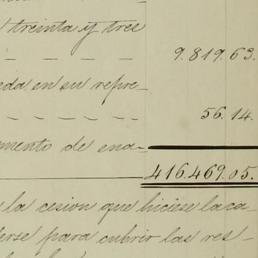 treinta y tres
9.819.63.
eda en su repre-
56.14.
mento de ena-
416.469.05.
la cesion que hiciese la ca
derse para cubrir las res-